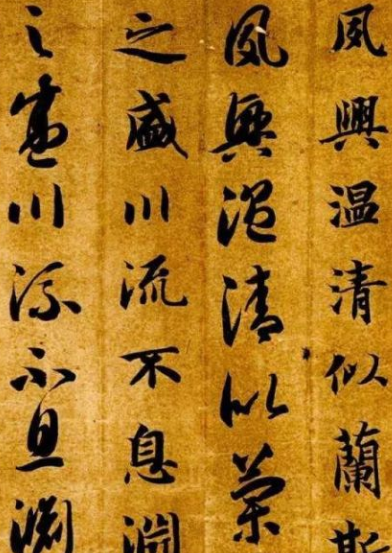 夙興温清似蘭斯
夙興温清似蘭
之盛川流不息淵
之盛川流不息淵